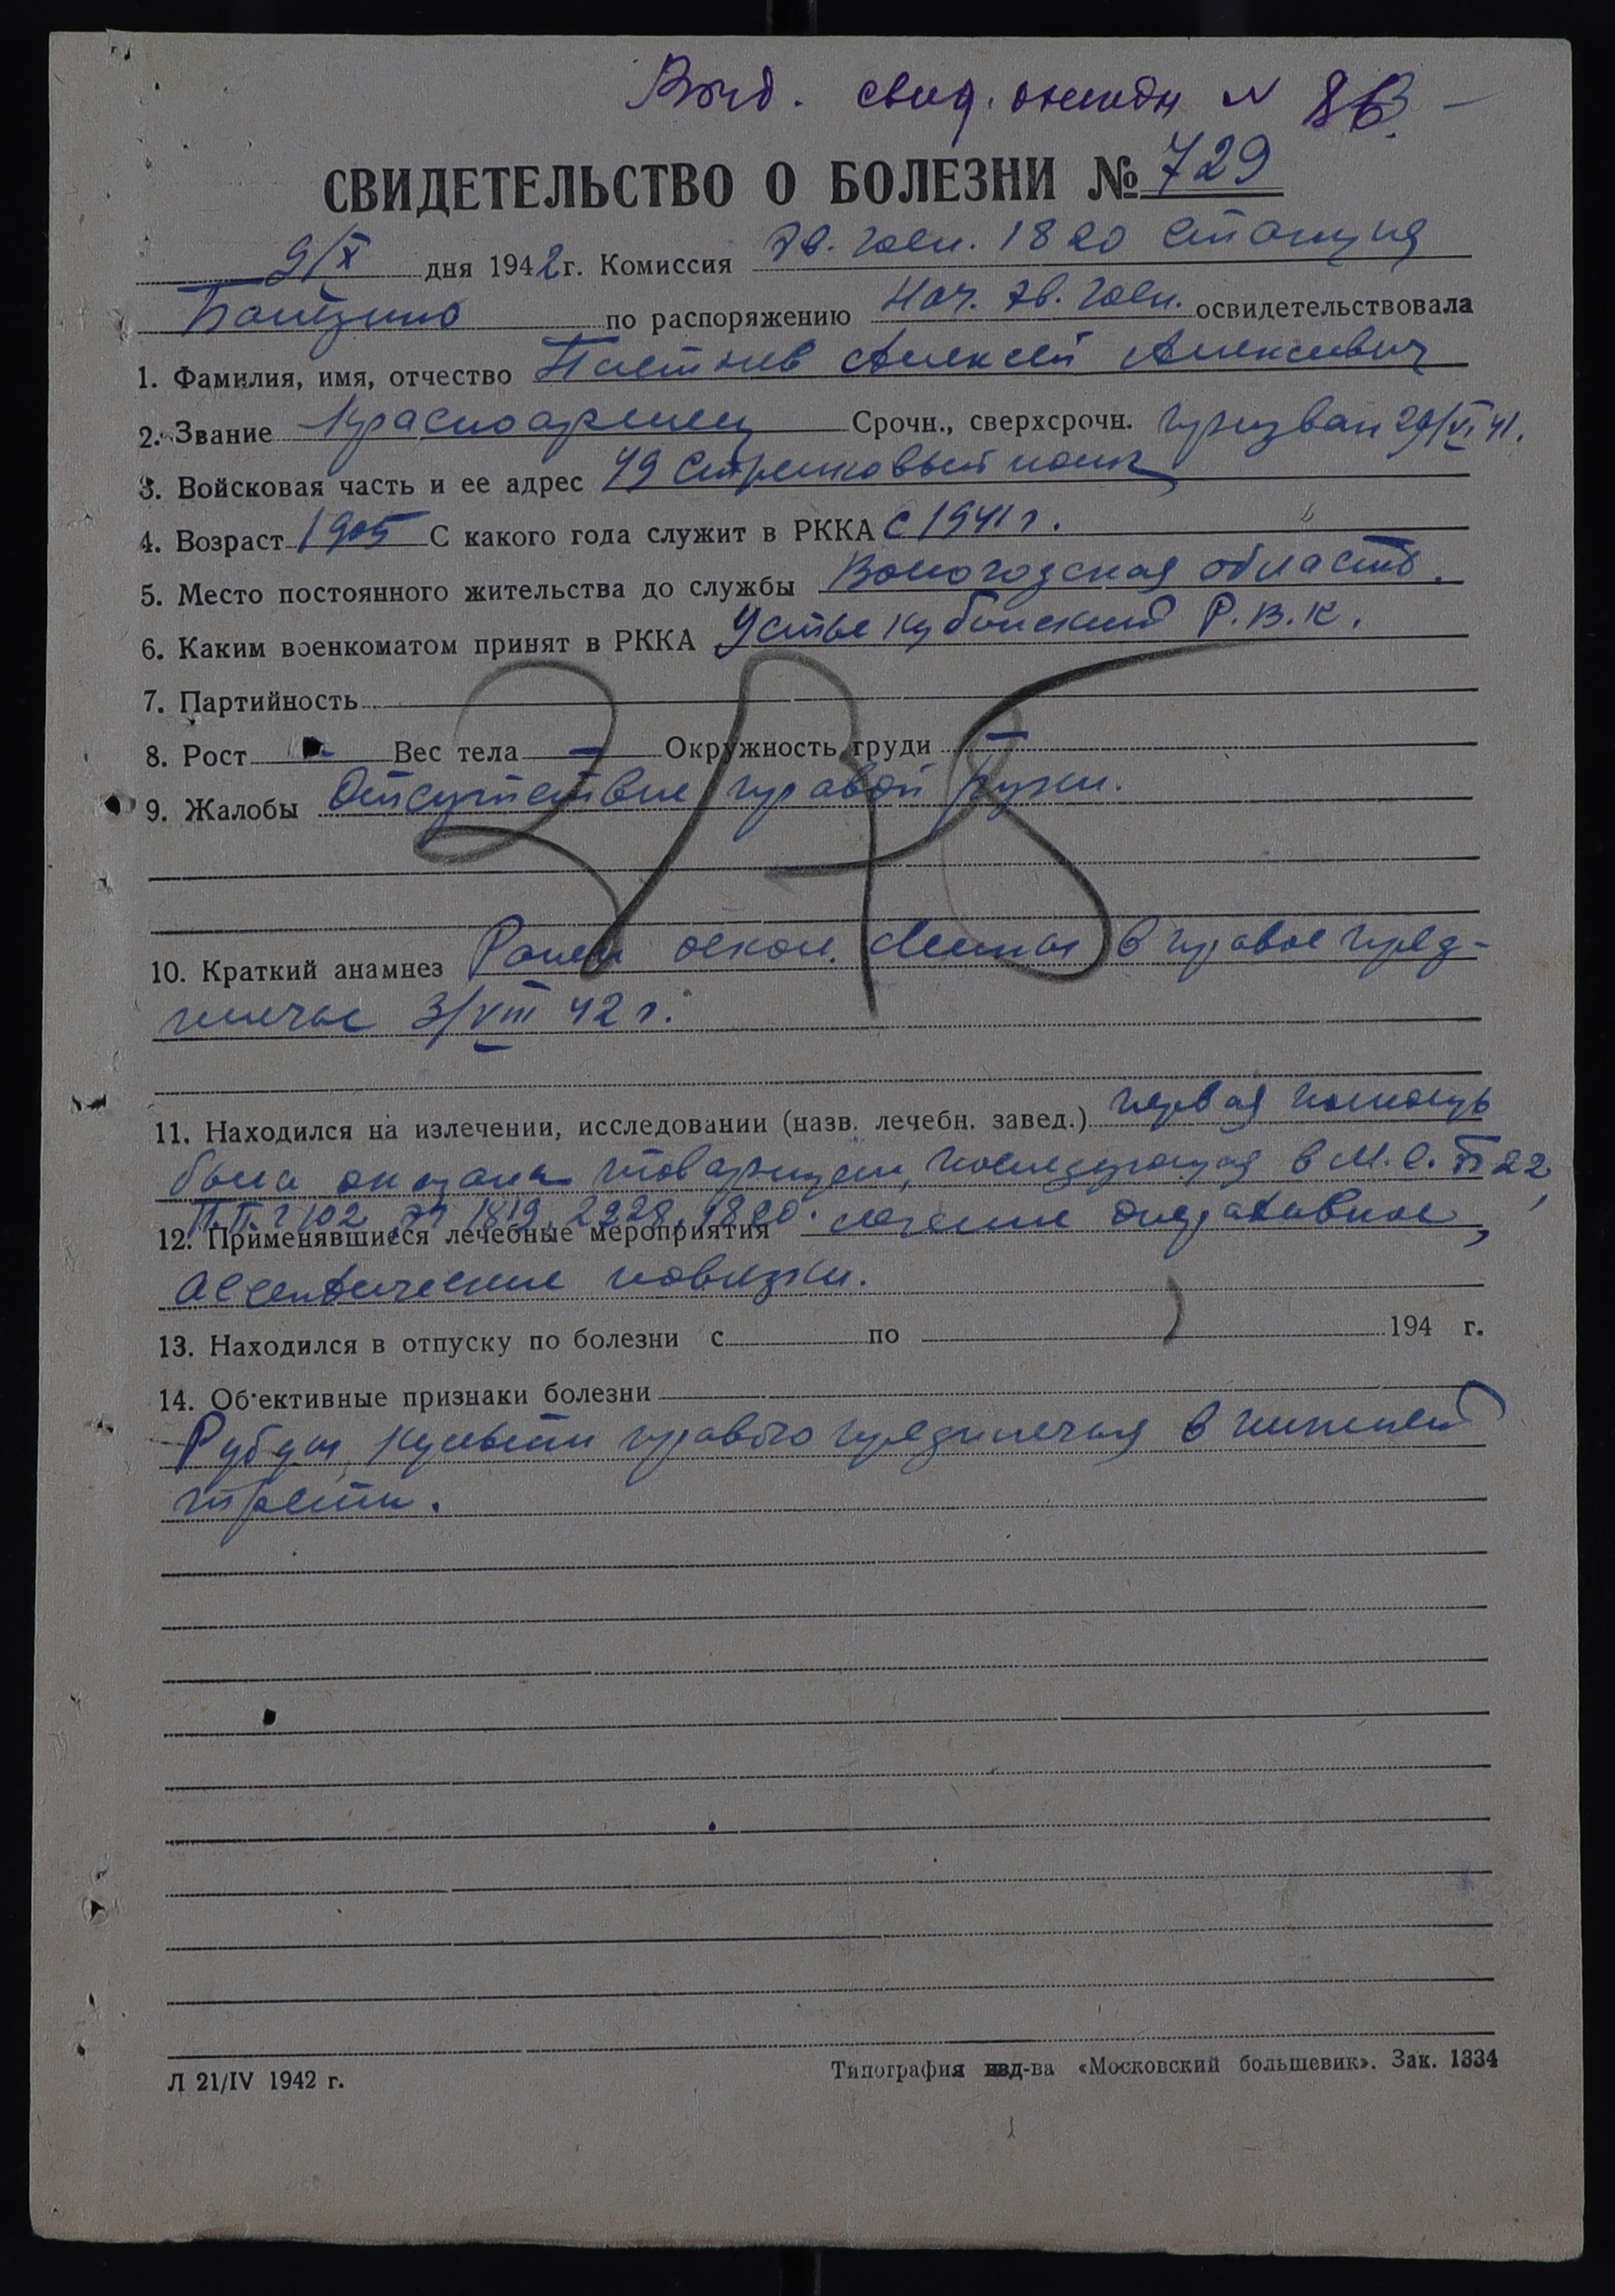 Выд. свид. 
СВИДЕТЕЛЬСТВО О БОЛЕЗНИ № 729
9/X дня 1942 г. Комиссия Эв. Госп. 1820 станция
по распоряжению Нач. Эв. Госп. освидетельствовала
1. Фамилия, имя, отчество Алексей Алексеевич
2. Звание Красноармеец Срочн., сверхсрочн. призван 29/VI 41.
3. Войсковая часть и ее адрес 49 Стрелковый полк
4. Возраст 1905 С какого года служит в РККА С 1941 г.
5. Место постоянного жительства до службы Вологодская область.
6. Каким военкоматом принят в РККА Устье Кубинский Р.В.К.
7. Партийность
8. Рост - Вес тела - Окружность груди -
9. Жалобы Отсутствие правой руки.
10. Краткий анамнез Ранен оскол. мины в правое пред-
плечье 3/VIII 42 г.
11. Находился на излечении, исследовании (назв. лечебн. завед.) первая помощь
была оказана товарищем, последующая в М.С.Б 22,
П.П.Г 102 ЭГ 1819, 2228, 1820.
12. Применявшиеся лечебные мероприятия лечение оперативное,
асептические повязки.
13. Находился в отпуску по болезни с по 194 г.
14. Об'ективные признаки болезни
Рубец культи правого предплечья в нижней
трети.
Л 21/IV 1942 г.
Типография изд-ва «Московский большевик». Зак. 1334